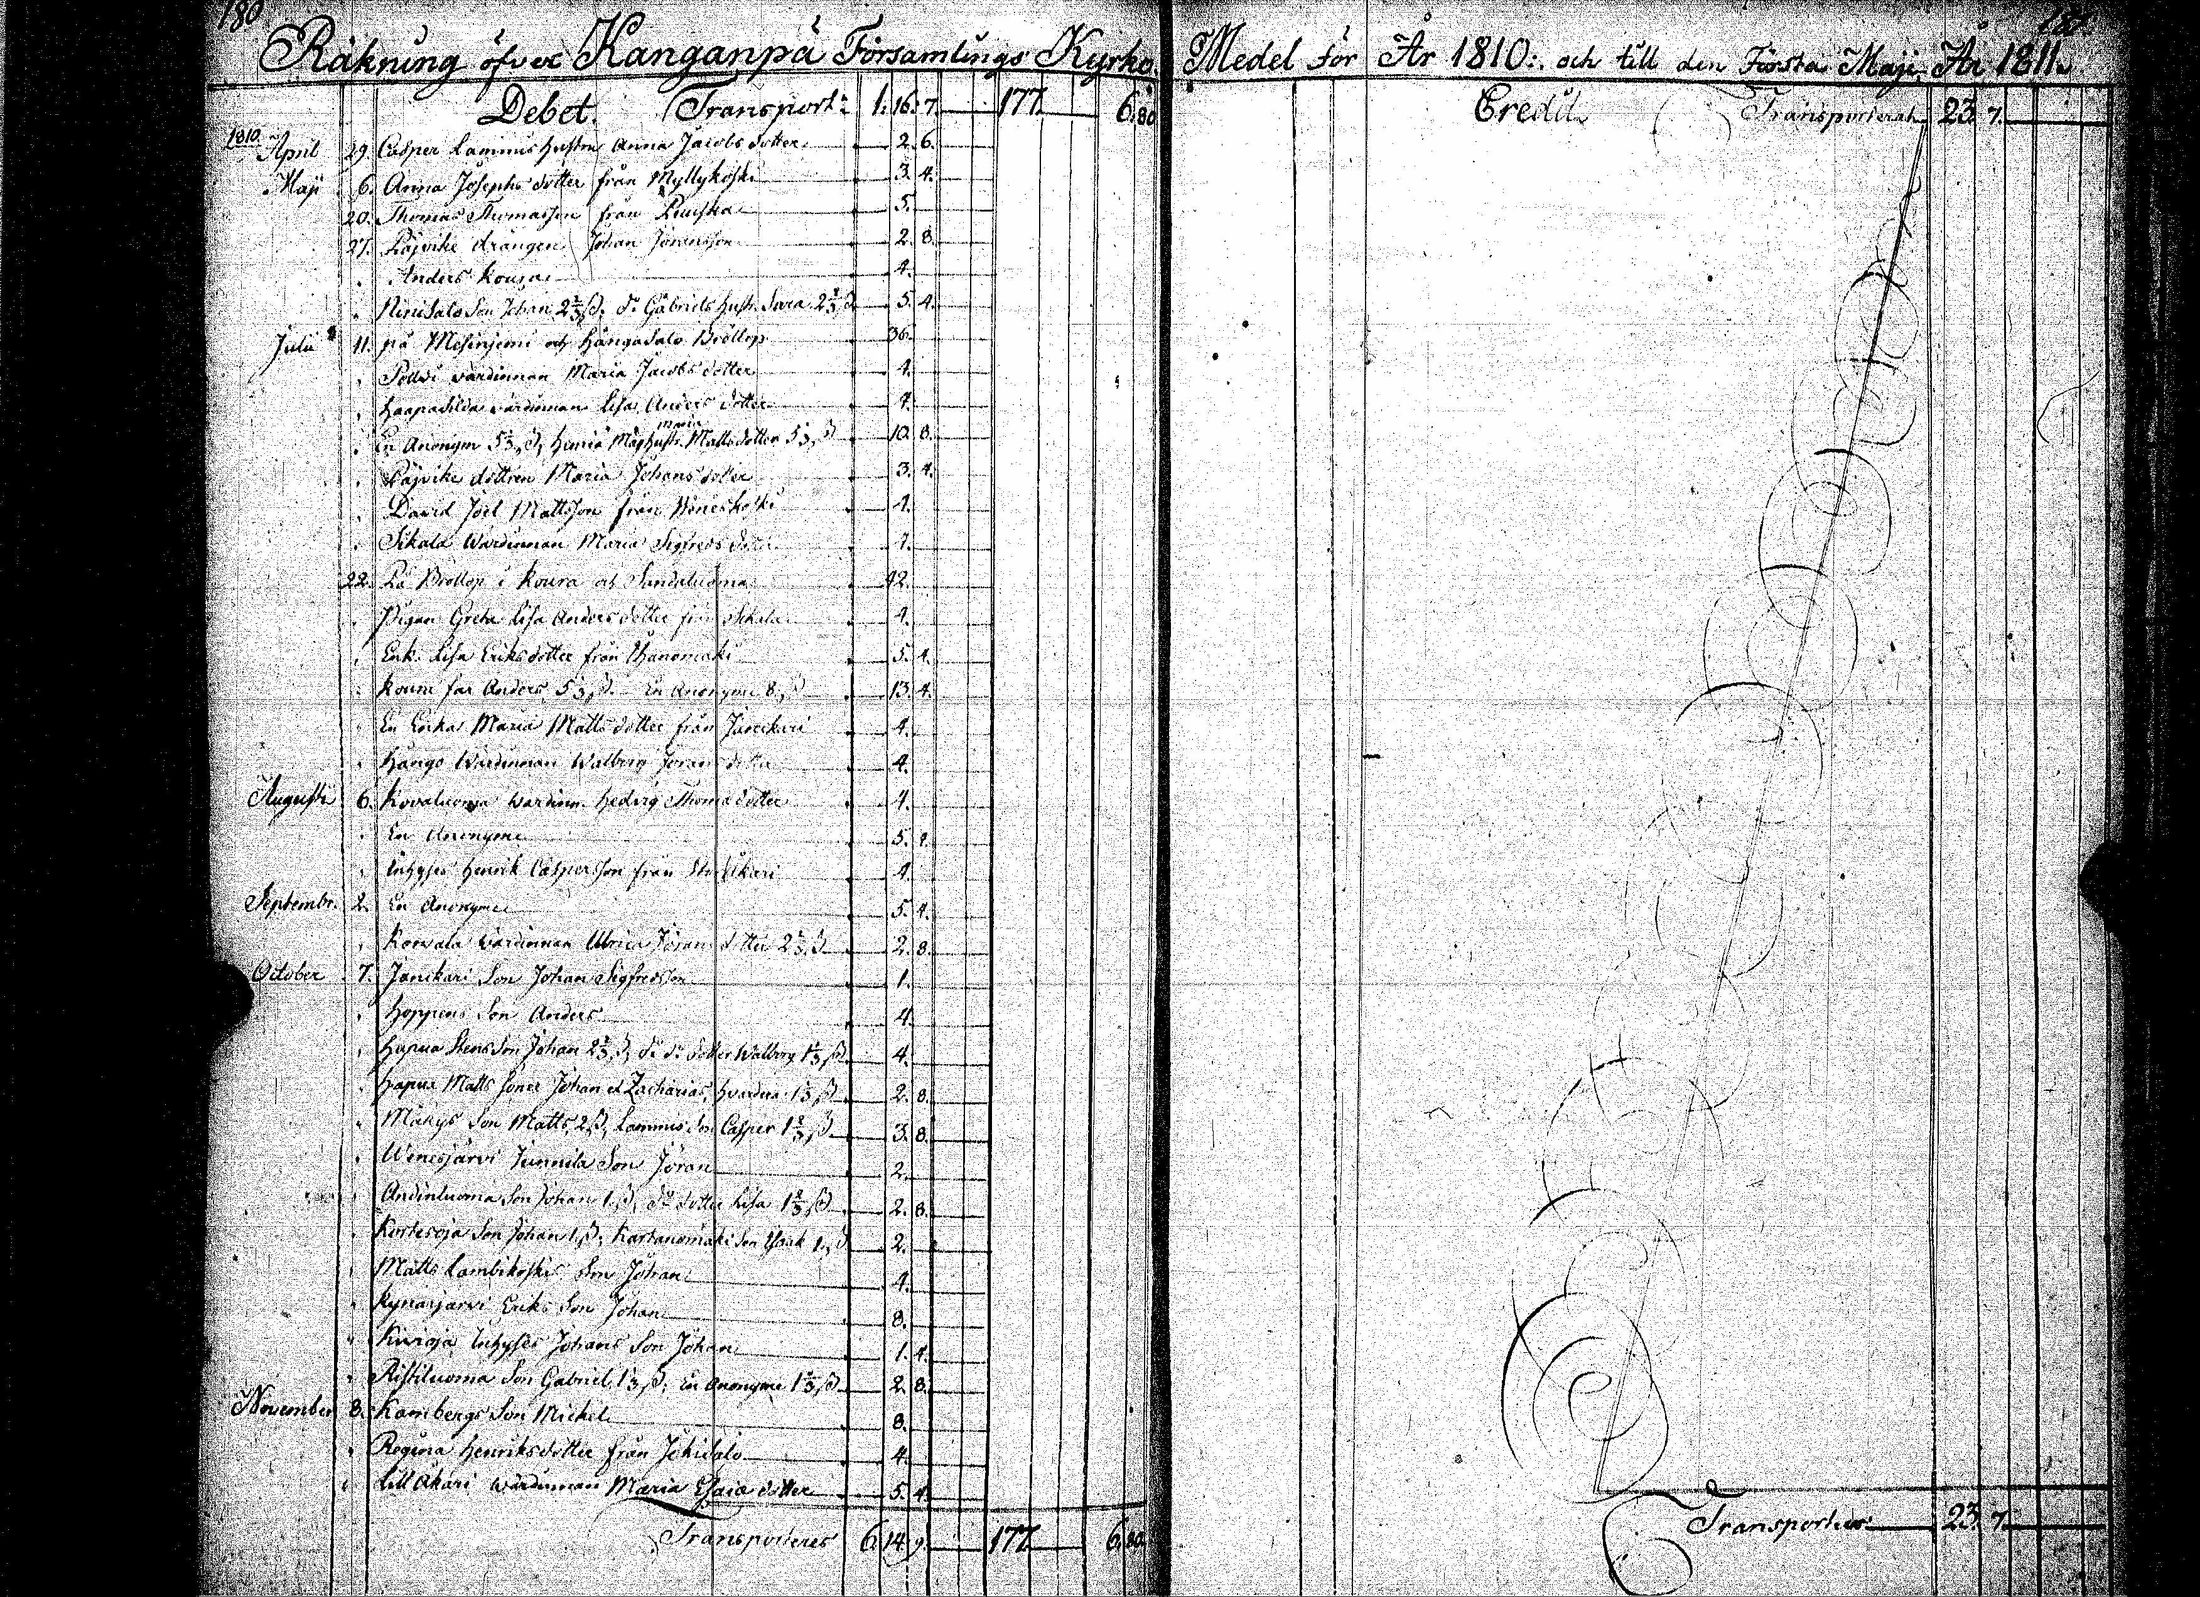 180
Räkning öfver Kanganpä Församlings Kyrko
Debet. Transport: 1. 16. 7. 177. 6. 80
1810.
April 29. Casper Lammis hustru Anna Jacobs dotter 2. 6.
Maji 6. Anna Josephs dotter från Myllykoski 3. 4.
20. Thomas Thomasson från 5.
27. Päjvike drängen Johan Jöransson 2. 8.
Anders Koura 4.
Niinisalo Son Johan 2 2/3 ß. do Gabriels hustr. Sara 2 2/3 ß 5. 4.
Julii 11. på och Hångasalo Bröllop 36.
wärdinnan Maria Jacobs dotter 4.
wärdinnan Lisa Anders dotter 4.
En Anonym 5 1/3 ß, Måghustr. Maria Matts dotter 5 1/3 ß 10. 8.
Päjvike dottren Maria Johans dotter 3. 4.
David Joel Mattsson från 4.
Sikala Wärdinnan Maria Sigfreds dotter 4.
22. På Bröllop i Koura och Sandaluoma 42.
Pigan Greta Lisa Anders dotter från Sikala 4.
Enk. Lisa Eriks dotter från 5. 4.
far Anders 5 1/3 ß. En Anonyme 8 ß 13. 4.
En Enka Maria Matts dotter från 4.
Hångo Wärdinnan Walborg Jörans dotter 4.
Augusti 6. Kovaluoma wärdinn. Hedvig Thomædotter 4.
En Anonyme 5.
Inhyses Henrik Caspersson från 4.
Septembr. 2. En Anonyme 5. 4.
Korvala wärdinnan Ulrica Jörans dotter 2 2/3 ß 2. 8.
October 7. Janikari Son Johan Sigfredsson 1.
Hoppens Son Anders 4.
Hapua Stens Son Johan 2 2/3 ß, do do dotter Walborg 1 1/3 ß 4.
Hapua Matts Söner Johan et Zacharias, hvardera 1 1/3 ß 2. 8.
Mäkys Son Matts, 2 ß, Lammis Son Casper 1 2/3 ß 3. 8.
Wenesjärvi Junnila Son Jöran 2.
Andinluoma Son Johan 1 ß, do dotter Lisa 1 2/3 ß 2. 8.
Kortesoja Son Johan 1 ß, Kartanomäki Son Isaak 1 ß 2.
Matts Lambikoskis Son Johan 4.
Kynäsjärvi Eriks Son Johan 8.
Kivioja Inhyses Johans Son Johan 1. 4.
Ristiluoma Son Gabriel 1 1/3 ß, En Anonyme 1 1/3 ß 2. 8.
November 8. Kambergs Son Michel 8.
Regina Henriksdotter från 4.
Lill wärdinnan Maria Esaiæ dotter 5. 4.
Transporteres 6. 14. 9. 177. 6. 80.
Medel för År 1810: och till den Första Maji År 1811.
Credit. Transporterat 23. 7.
Transporteres 23. 7.